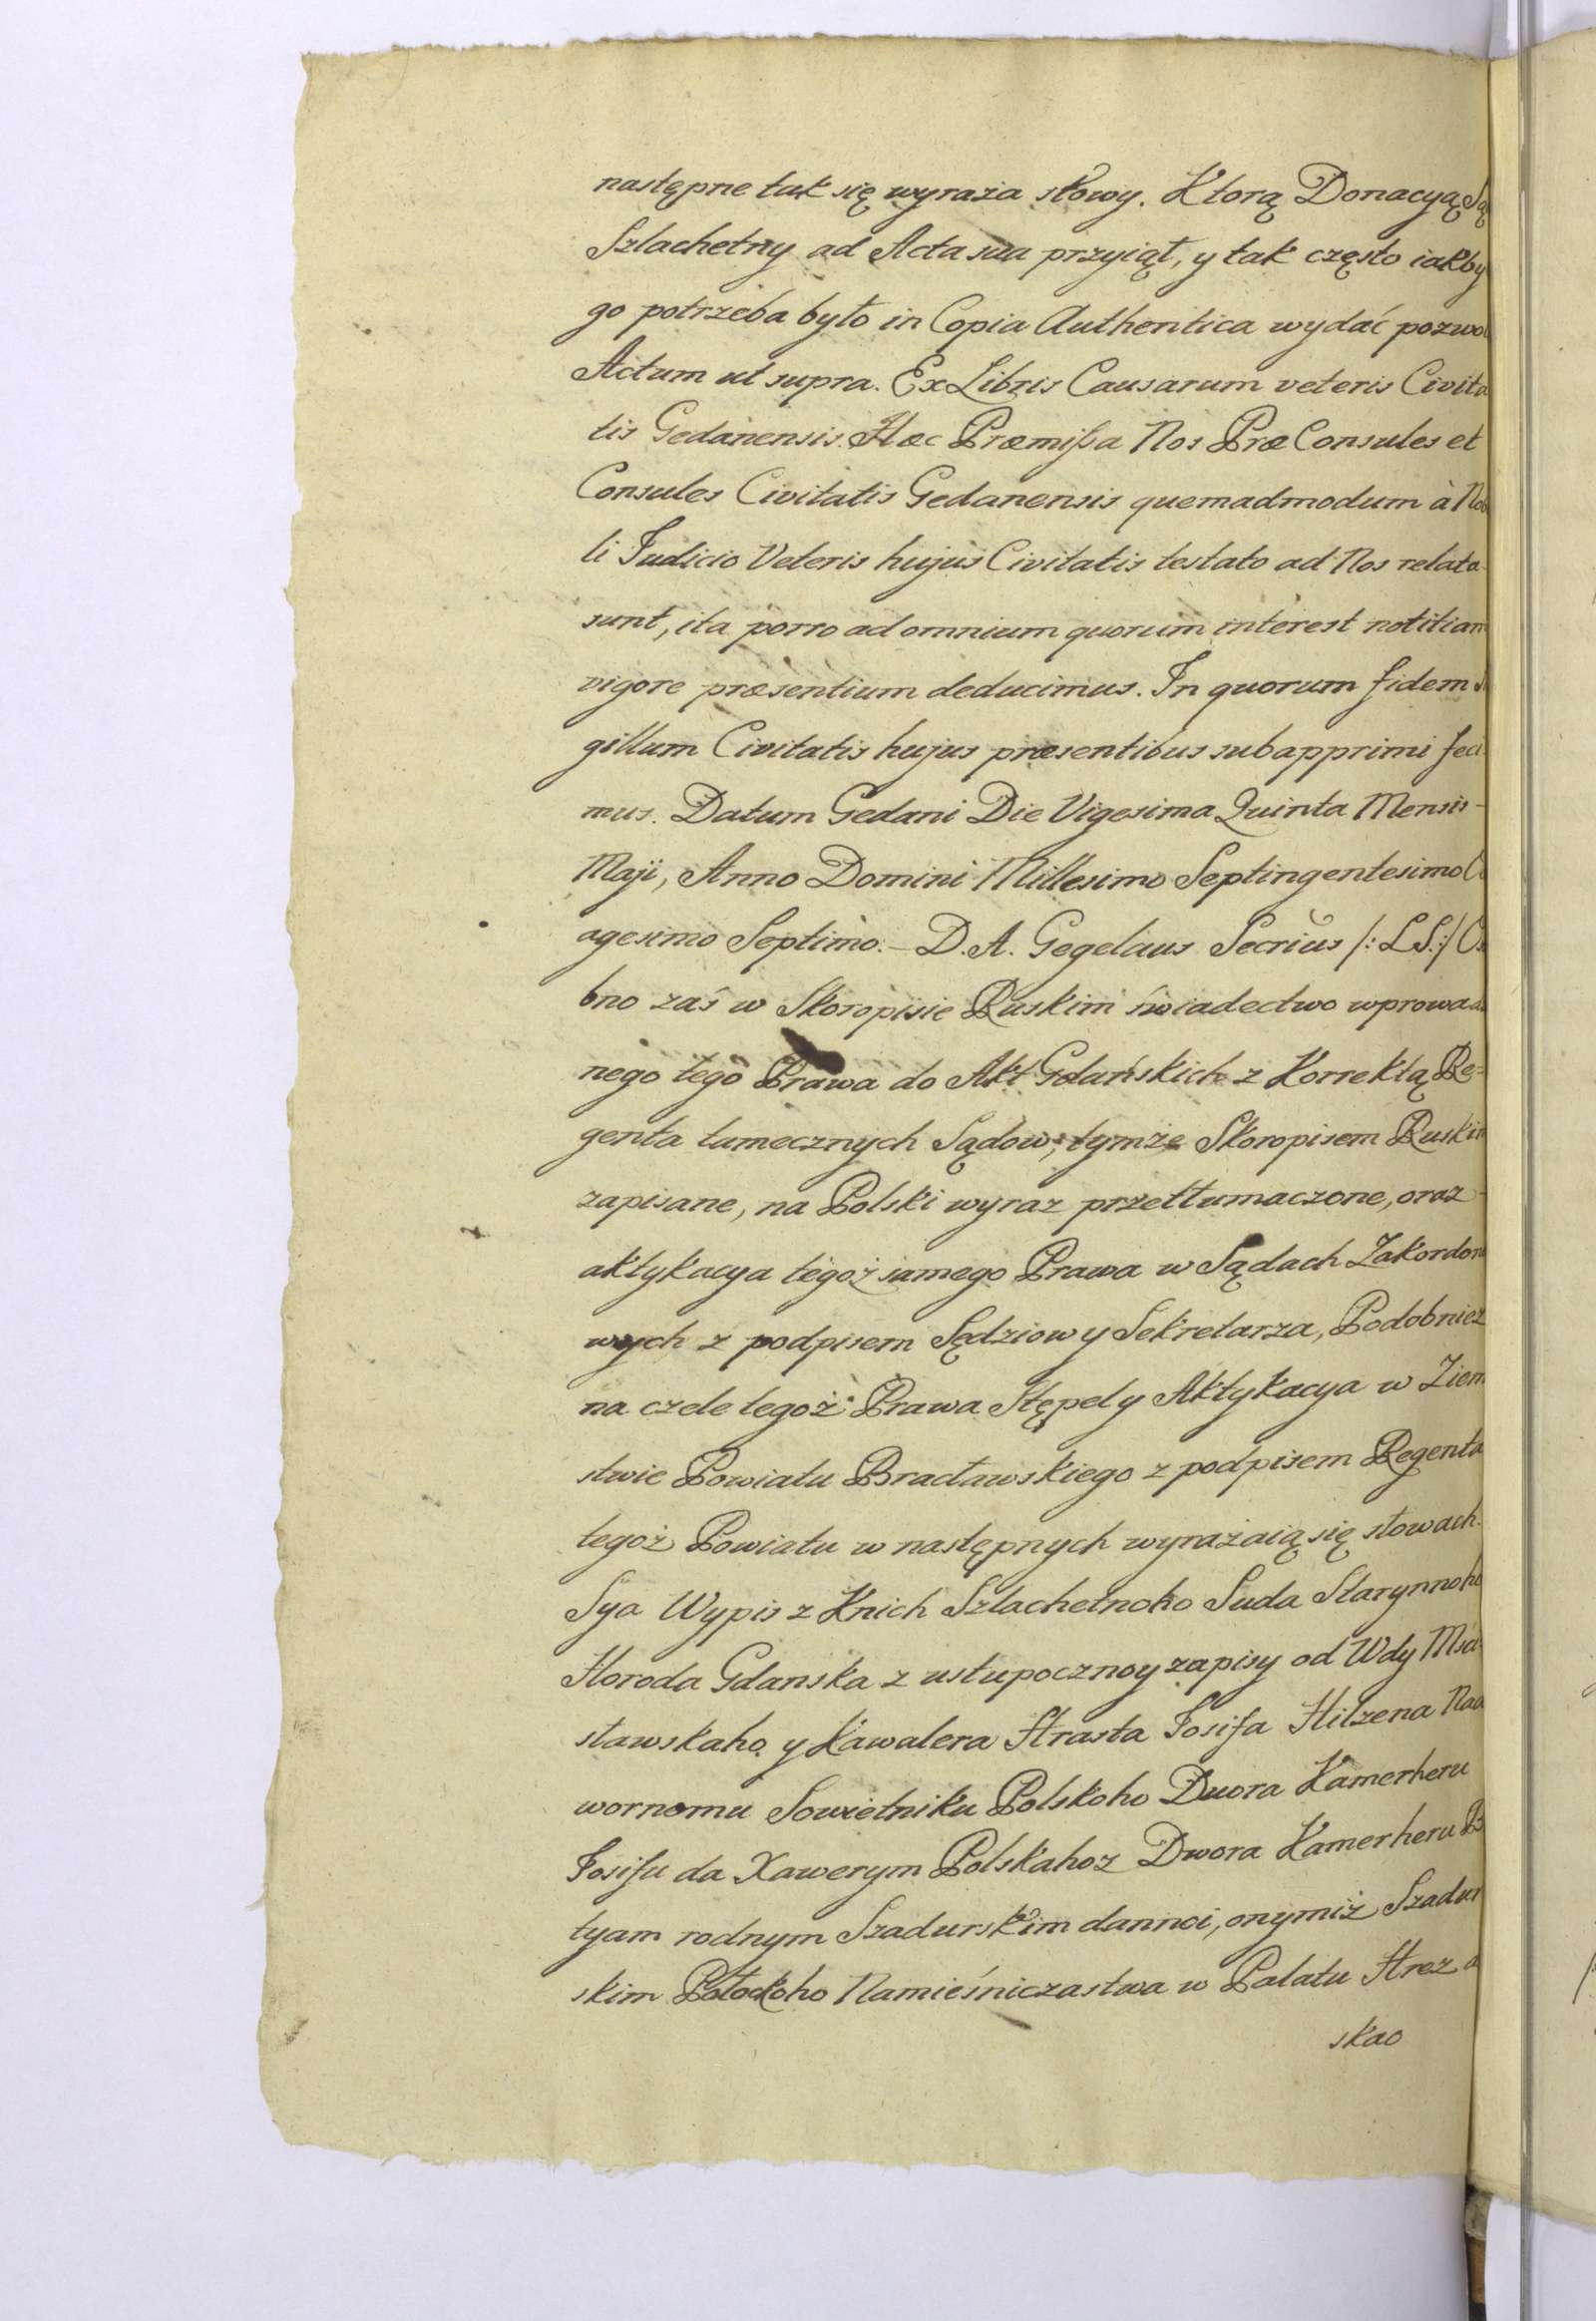 następne tak się wyraża słowy. Ktorą Donacyą Są
Szlachetny ad Acta sua przyiął, y tak często iakby
go potrzeba było in Copia Authentica wydać pozwol
Actum ut supra. Ex Libris Causarum veteris Civita
tis Gedanensis. Hæc Præmissa Nos Præ Consules et
Consules Civitatis Gedanensis quemadmodum à Nob
li Judicio Veteris hujus Civitatis testato ad Nos relata
sunt, ita porro ad omnium quorum interest notitiam
vigore præsentium deducimus. In quorum fidem si
gillum Civitatis hujus præsentibus subapprimi feci
mus. Datum Gedani Die Vigesima Quinta Mensis -
Maji, Anno Domini Millesimo Septingentesimo
agesimo Septimo. - D. A. Gegelaus Secrius /: LS :/ Os
bno zaś w Skoropisie Ruskim świadectwo wprowad
nego tego Prawa do Akt Gdańskich z Korrektą Re=
genta tamecznych Sądow, tymże Skoropisem Ruskim
zapisane, na Polski wyraz przetłumaczone, oraz -
aktykacya tegoż samego Prawa w Sądach Zakordon
wych z podpisem Sędziow y Sekretarza, Podobnież
na czele tegoż Prawa Stępel y Aktykacya w Ziem
stwie Powiatu Bracławskiego z podpisem Regenta
tegoż Powiatu w następnych wyrażaią się słowach.
Sya Wypis z Knich Szlachetnoho Suda Starynnoho
Horoda Gdanska z ustupocznoy zapisy od Wdy Mści
sławskaho y Kawalera Hrasta Iosifa Hilzena Nad
wornomu Sowietniku Polskoho Dwora Kamerheru
Iosifu da Xawerym Polskahoz Dwora Kamerheru B
tyam rodnym Szadurskim dannoi, onymiż Szadur
skim Połockoho Namieśniczastwa w Pałatu Hraz d
skao